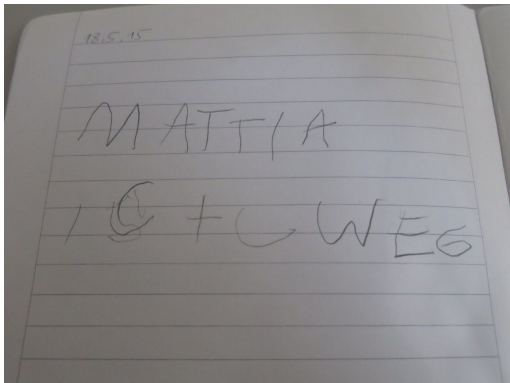 18.5.15
MATTIA
IST WEG